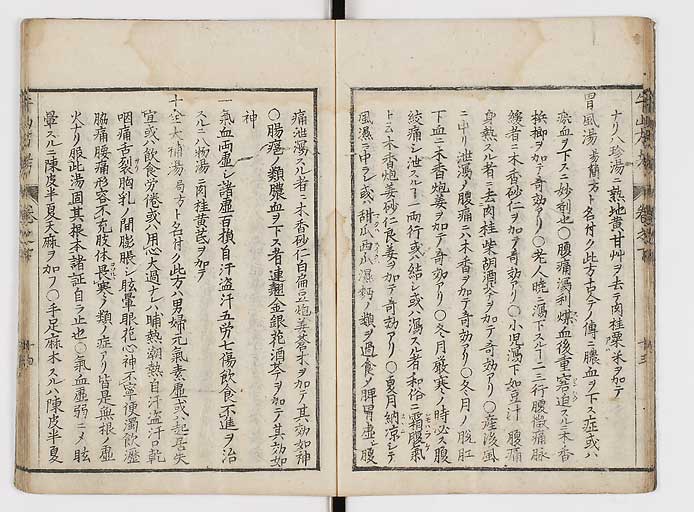 ナリ人珍湯ニ熟地黄甘艸ヲ去テ肉桂粟米ヲ加テ
胃風湯 方ト名付ク此方古今ノ傳ニ膿血ヲ下ス症或ハ
瘀血ヲ下スニ妙剤也〇腹痛瀉利煤血後重窘迫スルニ木香
梹榔ヲ加テ奇効アリ〇老人暁ニ瀉下スルヿ二三行腹微痛脉
ニ木香砂仁ヲ加テ奇効アリ〇小児瀉下如豆汁腹痛
身熱スル者ニ去肉桂柴胡 ヲ加テ奇効アリ〇産後風
ニ中リ泄瀉ノ腹痛ニハ木香ヲ加テ奇効アリ〇冬月ノ脱肛
下血ニ木香炮姜ヲ加テ奇効アリ〇冬月厳寒ノ時必ス腹
痛シ泄スルヿ一両行或ハ結シ或ハ瀉スル者和俗ニ霜腹氣
ト云木香炮姜砂仁良姜ヲ加テ奇効アリ〇夏月納凉シテ
風濕ニ中ラレ或ハ甜瓜西瓜濕麪ノ類ヲ過食シ脾胃虚シ腹
痛泄瀉スル者ニ木香砂仁白扁豆炮姜蒼朮ヲ加テ其効如神
〇腸 ノ類膿血ヲ下ス者連翹金銀花酒芩ヲ加テ其効如
神
一氣血両虚シ諸虚百損自汗盗汗五労七傷飲食不進ヲ治
スルニ八物湯ニ肉桂黄芪ヲ加テ
十全大補湯 局方ト名付ク此方ハ男婦元氣素虚或ハ起居失
宜或ハ飲食労倦或ハ用心太過テレハ晡熱潮熱自汗盗汗口乾
咽痛舌裂胸乳ノ間膨脹シ眩暈眼花心神不寧便濁飲澁
脇痛腰痛形容不充肢体畏寒ノ類ノ症アリ皆是無根ノ虚
火ナリ服此湯固其根本諸証自ラ止也〇氣血虚弱ニメ眩
暈スルニ陳皮半夏天麻ヲ加フ〇手足麻木スルハ陳皮半夏